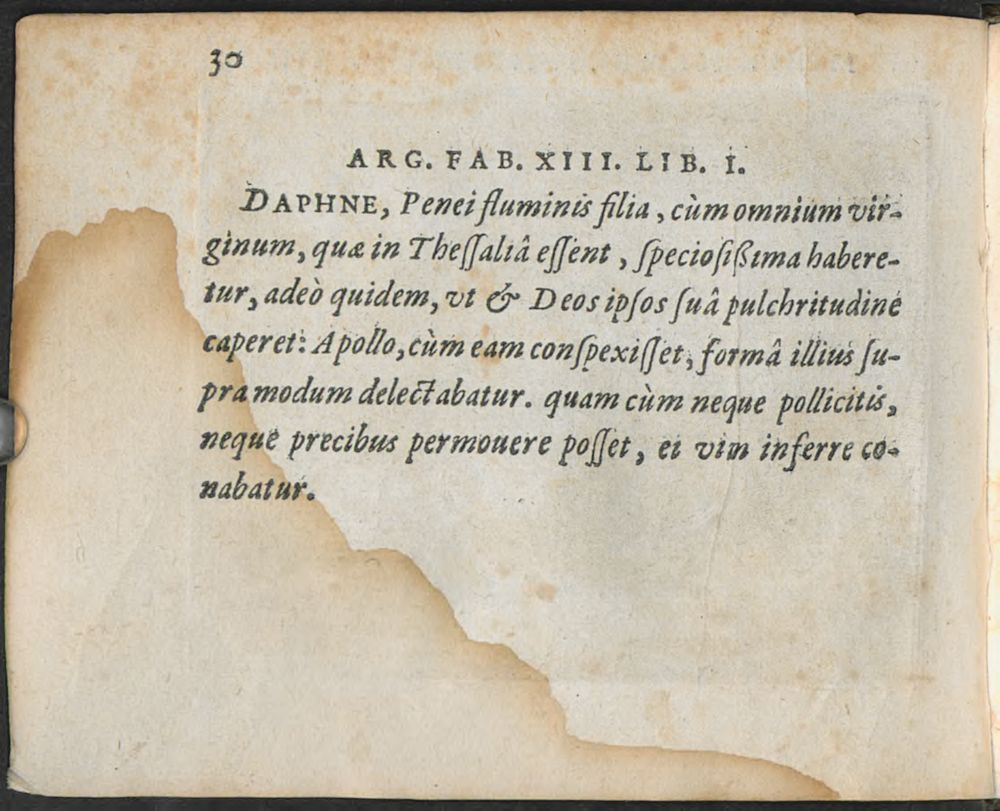 30
ARG. FAB. XIII. LIB. I.
DAPHNE, Penei fluminis filia, cùm omnium vir-
ginum, quæ in Theſſaliâ eſſent, ſpecioſiſſima habere-
tur, adeò quidem, vt & Deos ipſos ſuâ pulchritudine
caperet: Apollo, cùm eam conſpexiſſet, formâ illius ſu-
pra modum delectabatur. quam cùm neque pollicitis,
neque precibus permouere poſſet, ei vim inferre co-
nabatur.